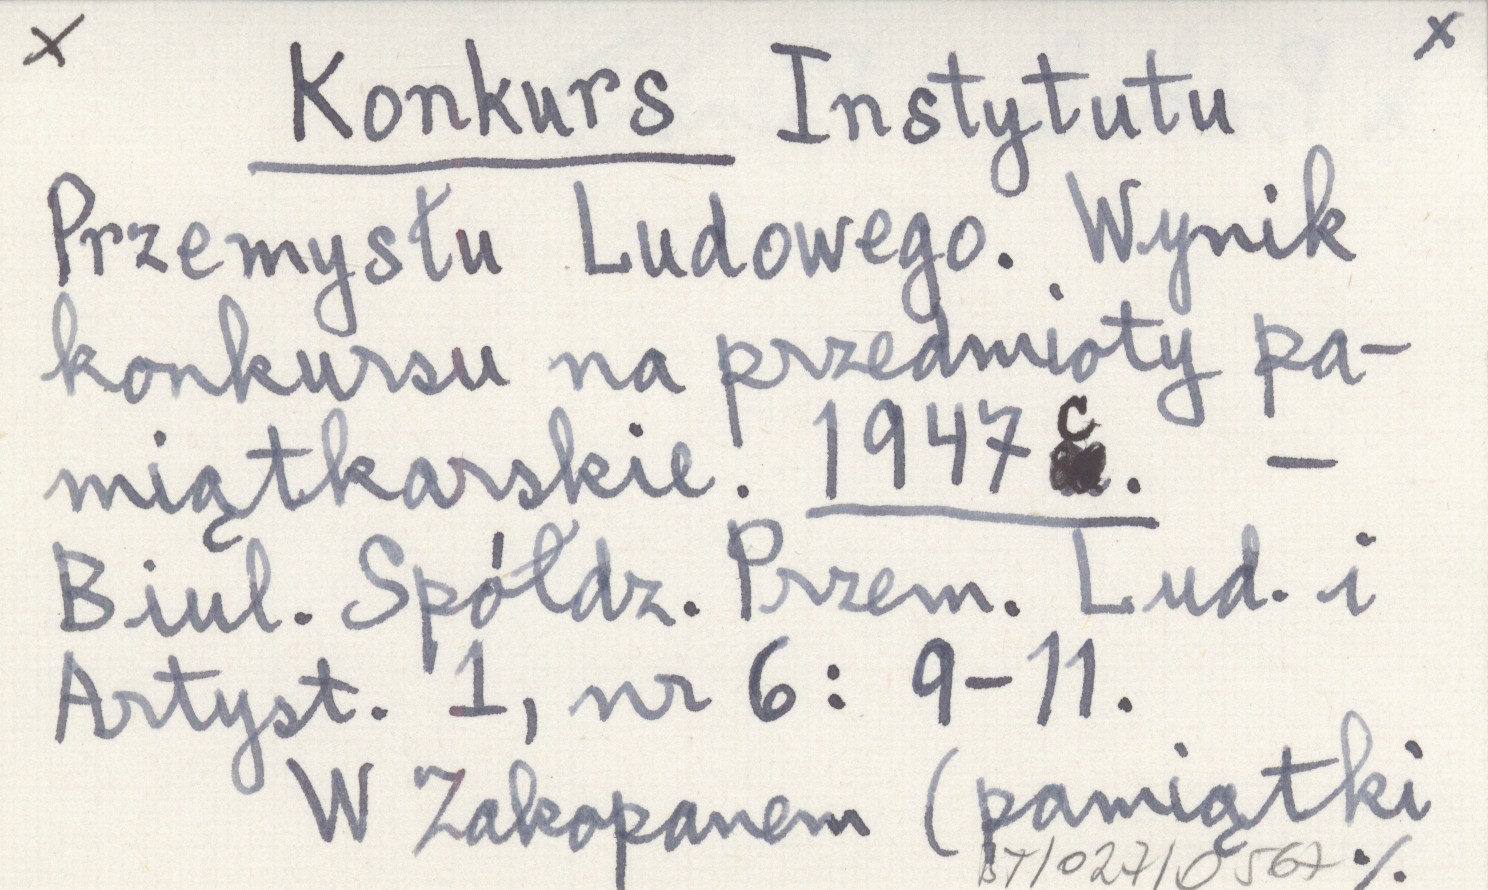 x x
Konkurs Instytutu
Przemysłu Ludowego. Wynik
konkursu na przedmioty pa-
miątkarskie. 1947 c. –
Biul. Spółdz. Przem. Lud. i
Artyst. 1, nr 6: 9-11.
W Zakopanem (pamiątki
BT/027/0567 ./.